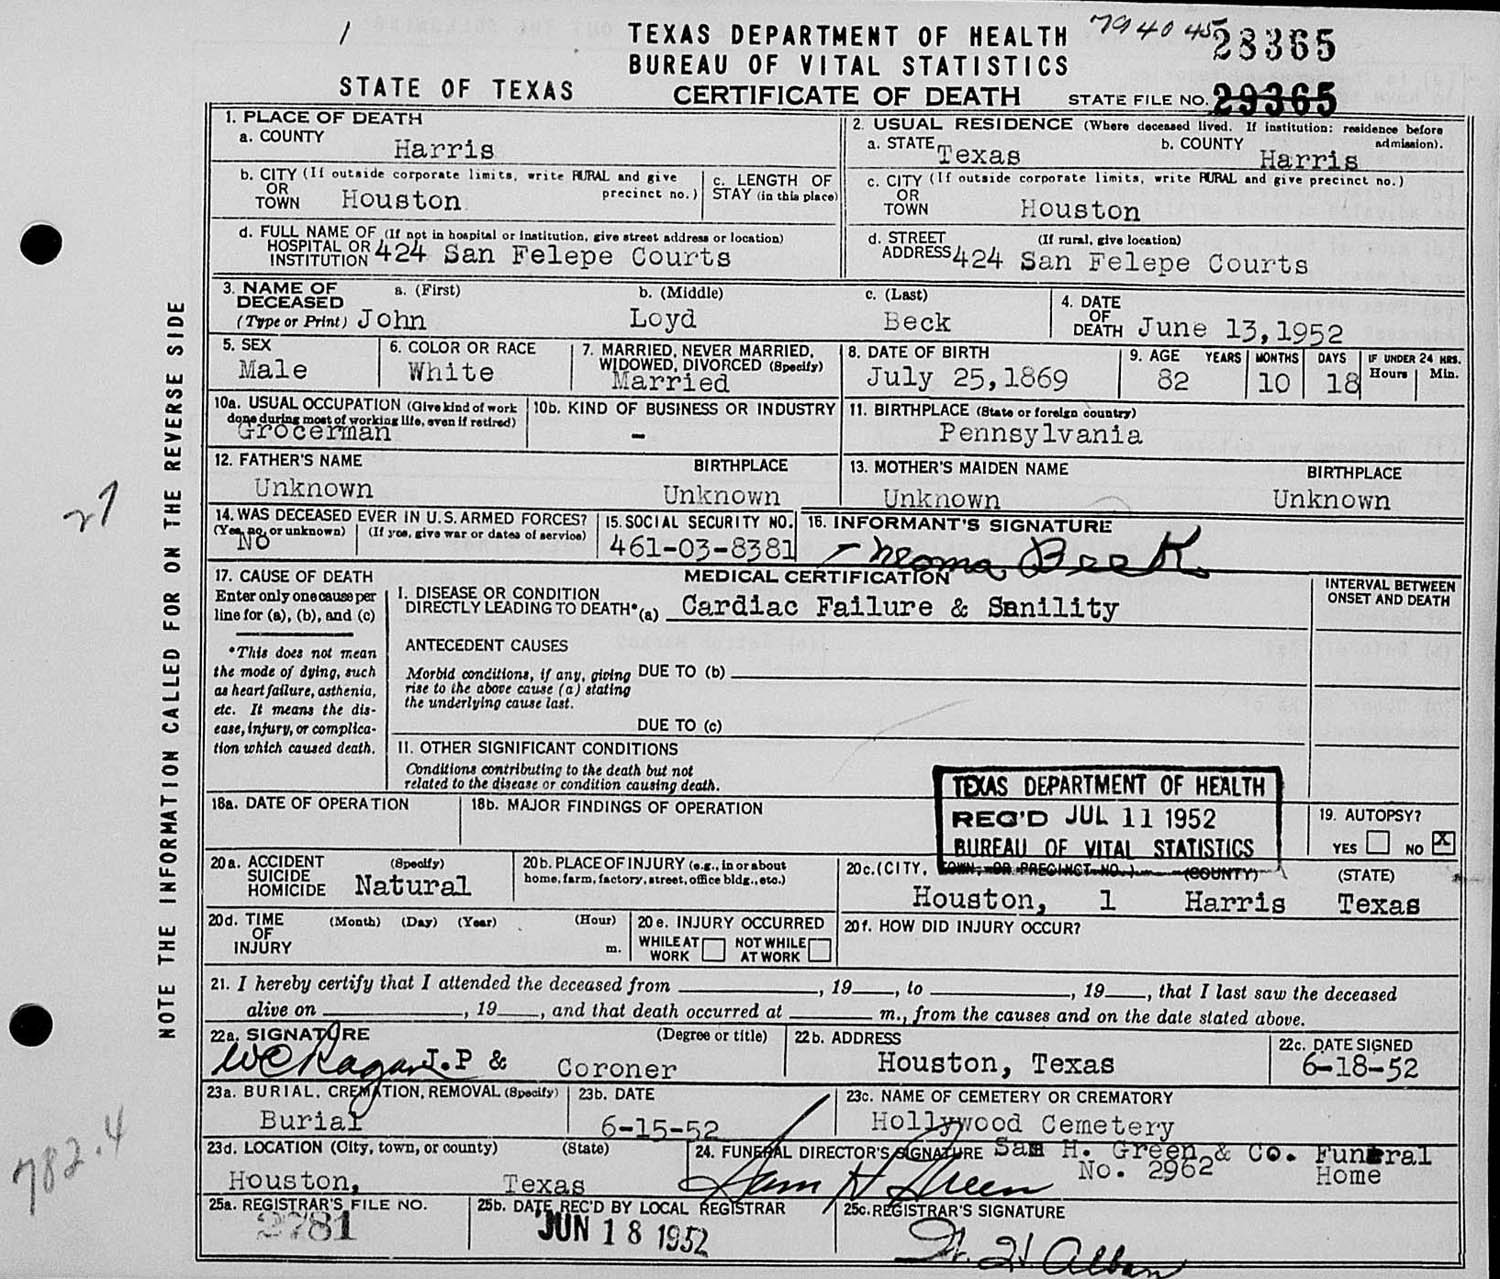 1
TEXAS DEPARTMENT OF HEALTH
BUREAU OF VITAL STATISTICS
794045
28365
STATE OF TEXAS
CERTIFICATE OF DEATH
STATE FILE NO. 29365
1. PLACE OF DEATH
a. COUNTY
Harris
2. USUAL RESIDENCE (Where deceased lived. If institution: residence before admission).
a. STATE Texas
b. COUNTY Harris
b. CITY (If outside corporate limits, write RURAL and give precinct no.)
OR
TOWN Houston
c. LENGTH OF STAY (in this place)
c. CITY (If outside corporate limits, write RURAL and give precinct no.)
OR
TOWN Houston
d. FULL NAME OF (If not in hospital or institution, give street address or location)
HOSPITAL OR
INSTITUTION 424 San Felepe Courts
d. STREET (If rural, give location)
ADDRESS 424 San Felepe Courts
3. NAME OF DECEASED
(Type or Print)
a. (First)
John
b. (Middle)
Loyd
c. (Last)
Beck
4. DATE OF DEATH June 13,1952
5. SEX
Male
6. COLOR OR RACE
White
7. MARRIED, NEVER MARRIED, WIDOWED, DIVORCED (Specify)
Married
8. DATE OF BIRTH
July 25,1869
9. AGE YEARS MONTHS DAYS IF UNDER 24 HRS.
Hours Min.
82 10 18
10a. USUAL OCCUPATION (Give kind of work done during most of working life, even if retired)
Grocerman
10b. KIND OF BUSINESS OR INDUSTRY
-
11. BIRTHPLACE (State or foreign country)
Pennsylvania
12. FATHER'S NAME BIRTHPLACE
Unknown Unknown
13. MOTHER'S MAIDEN NAME BIRTHPLACE
Unknown Unknown
14. WAS DECEASED EVER IN U.S. ARMED FORCES?
(Yes, no, or unknown) (If yes, give war or dates of service)
No
15. SOCIAL SECURITY NO.
461-03-8381
16. INFORMANT'S SIGNATURE
Neoma Beck
17. CAUSE OF DEATH
Enter only one cause per
line for (a), (b), and (c)
*This does not mean
the mode of dying, such
as heart failure, asthenia,
etc. It means the dis-
ease, injury, or complica-
tion which caused death.
MEDICAL CERTIFICATION
INTERVAL BETWEEN
ONSET AND DEATH
I. DISEASE OR CONDITION
DIRECTLY LEADING TO DEATH* (a) Cardiac Failure & Senility
ANTECEDENT CAUSES
Morbid conditions, if any, giving
rise to the above cause (a) stating
the underlying cause last.
DUE TO (b)
DUE TO (c)
II. OTHER SIGNIFICANT CONDITIONS
Conditions contributing to the death but not
related to the disease or condition causing death.
TEXAS DEPARTMENT OF HEALTH
REC'D JUL 11 1952
BUREAU OF VITAL STATISTICS
18a. DATE OF OPERATION
18b. MAJOR FINDINGS OF OPERATION
19. AUTOPSY?
YES NO X
20a. ACCIDENT
SUICIDE
HOMICIDE
(Specify)
Natural
20b. PLACE OF INJURY (e.g., in or about
home, farm, factory, street, office bldg., etc.)
20c. (CITY, TOWN, OR PRECINCT NO.) (COUNTY) (STATE)
Houston, 1 Harris Texas
20d. TIME
OF
INJURY
(Month) (Day) (Year) (Hour)
m.
20e. INJURY OCCURRED
WHILE AT WORK NOT WHILE AT WORK
20f. HOW DID INJURY OCCUR?
21. I hereby certify that I attended the deceased from , 19 , to , 19 , that I last saw the deceased
alive on , 19 , and that death occurred at m., from the causes and on the date stated above.
22a. SIGNATURE (Degree or title)
WC Ragan J.P & Coroner
22b. ADDRESS
Houston, Texas
22c. DATE SIGNED
6-18-52
23a. BURIAL, CREMATION, REMOVAL (Specify)
Burial
23b. DATE
6-15-52
23c. NAME OF CEMETERY OR CREMATORY
Hollywood Cemetery
23d. LOCATION (City, town, or county) (State)
Houston, Texas
24. FUNERAL DIRECTOR'S SIGNATURE Sam H. Green & Co. Funeral Home
No. 2962
Sam H Green
25a. REGISTRAR'S FILE NO.
2781
25b. DATE REC'D BY LOCAL REGISTRAR
JUN 18 1952
25c. REGISTRAR'S SIGNATURE
NOTE THE INFORMATION CALLED FOR ON THE REVERSE SIDE
27
782.4